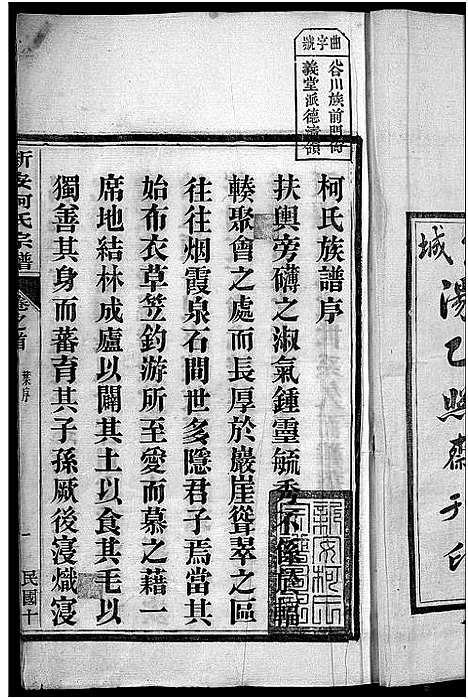 城
湯乙照齋刊印
曲字號
谷川族前門街
義堂派德濱領
柯氏族譜序
扶輿旁礴之淑氣鍾靈毓秀不係
輳聚會之處而長厚於巖崖聳翠之區
往往烟霞泉石間世多隱君子焉當其
始布衣草笠釣游所至愛而慕之藉一
席地結林成廬以闢其土以食其毛以
獨善其身而蕃育其子孫厥後寖熾寖
新安柯氏宗譜
卷之首
葉序
一
民國十
新安柯氏